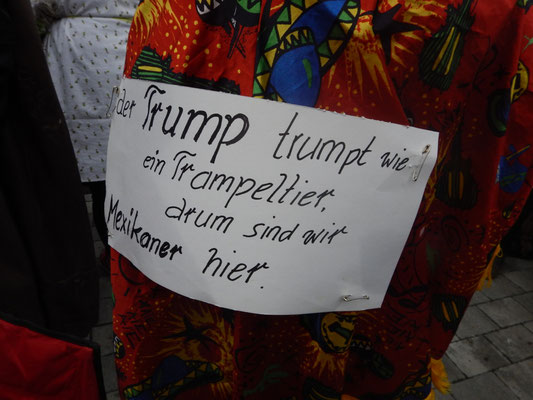 der Trump trumpt wie
ein Trampeltier,
drum sind wir
Mexikaner hier.